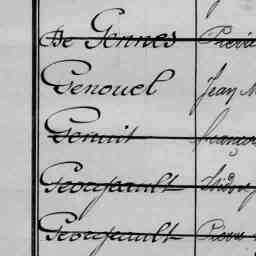 De Gennes Pierre
Genouel Jean M
Genuit François
Geoujault Isidore
Geoujault Pierre